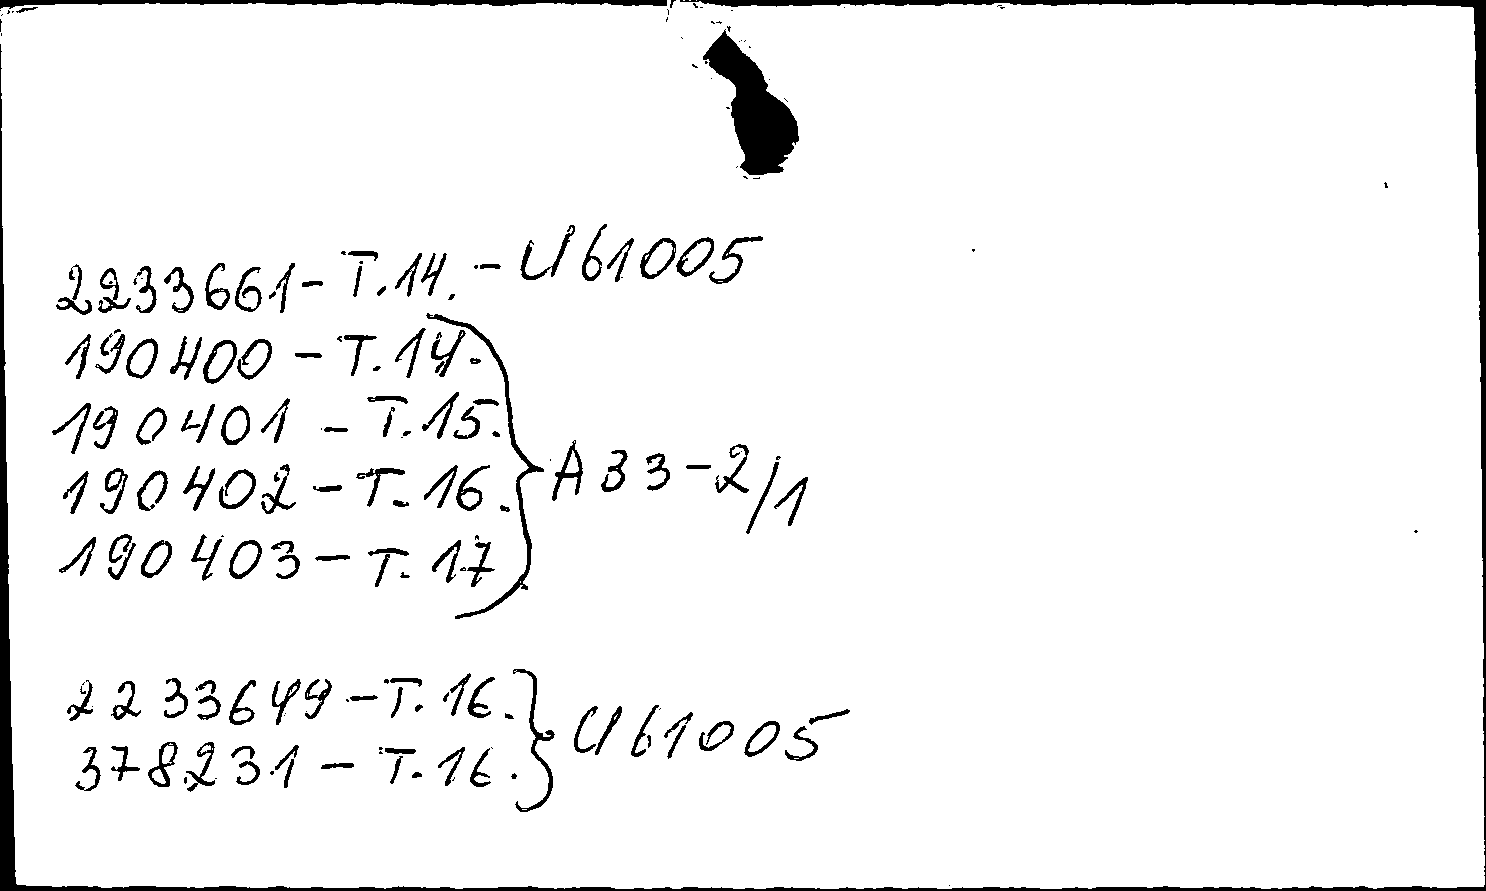 2233661 - Т.14. - И61005
190400 - Т.14.
190401 - Т.15.
190402 - Т. 16.
190403 - Т. 17
А33-2/1
2233649 - Т. 16.
378231 - Т. 16.
И61005